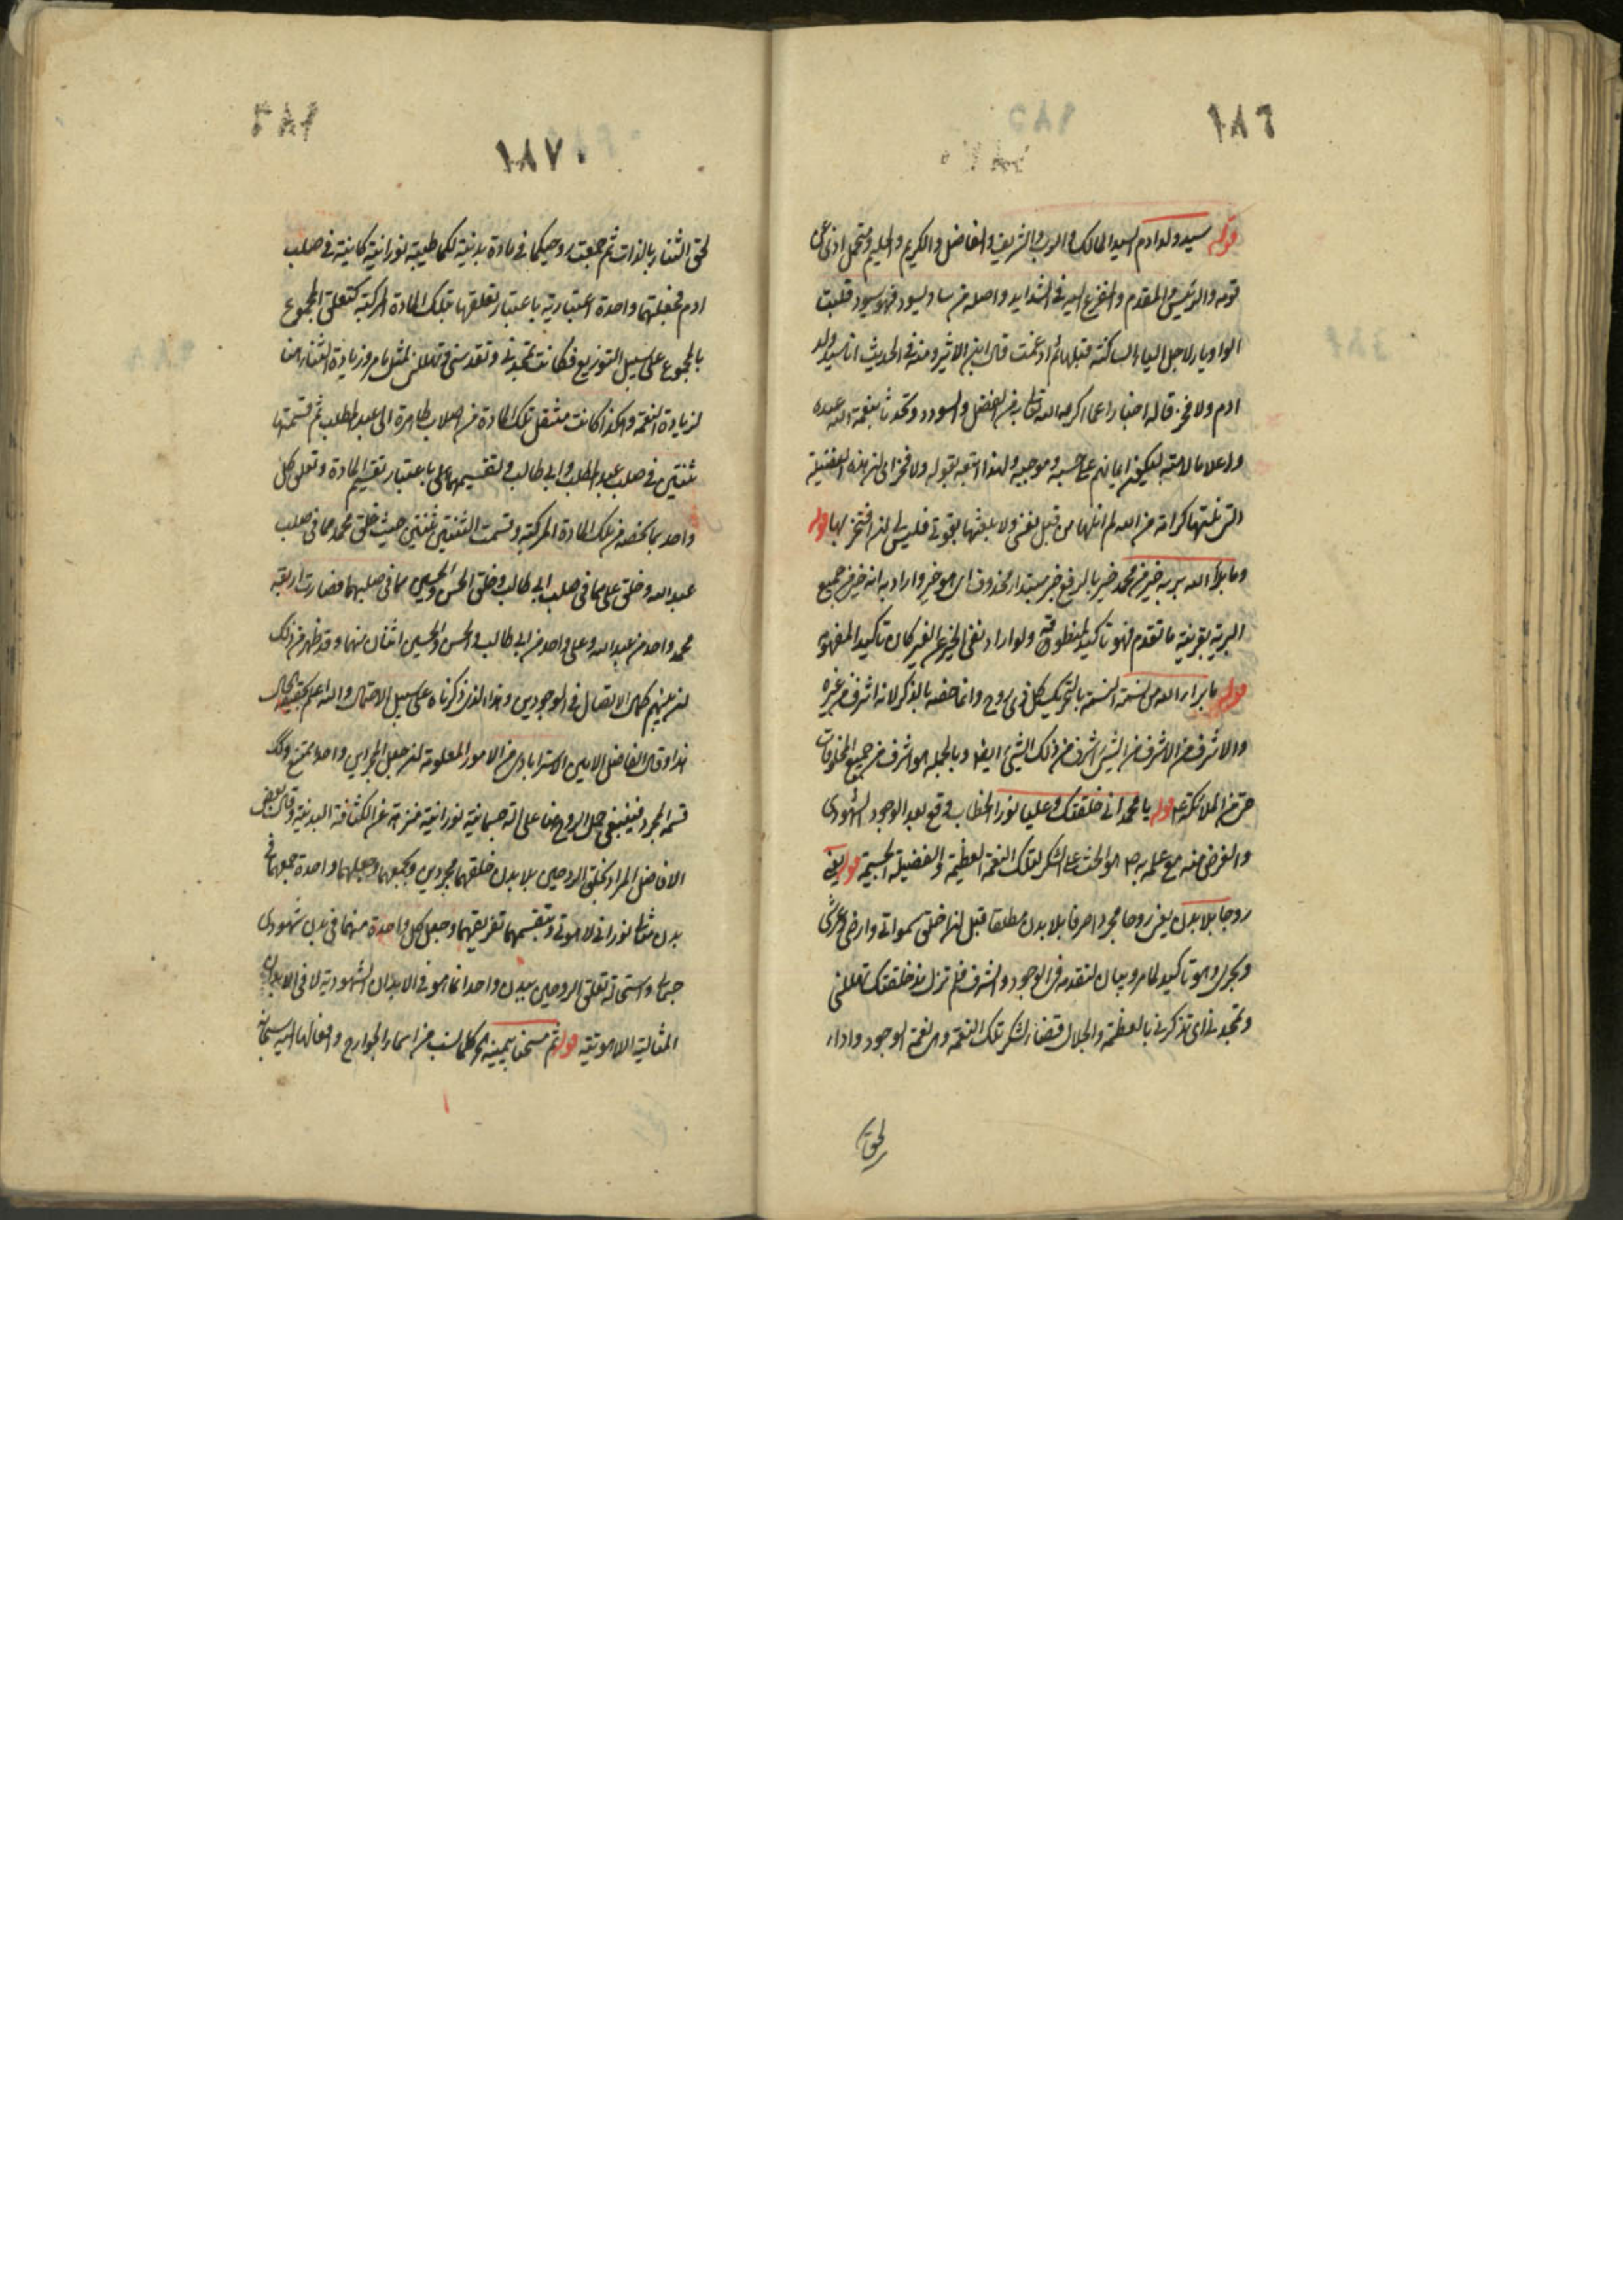 ١٨٦
قوله سيد ولد ادم السيد المالك والرب والشريف والفاضل والكريم والحليم ومتحمل اذى
قومه والرئيس والمقدم والمفزع اليه في الشدايد واصله من ساد يسود فهو سيود قلبت
الواو ياء لاجل الياء الساكنة قبلها ثم ادغمت قال ابن الاثير ومنه في الحديث انا سيد ولد
ادم ولا فخر قاله اخبارا عما اكرمه الله تعالى به من الفضل والسودد وتحدثا بنعمة الله عنده
واعلاما لامته ليكون ايمانهم على حسبه وموجبه ولهذا اتبعه بقوله ولا فخر اى ان هذه الفضيلة
التي نلتها كرامة من الله لم انلها من قبل نفسي ولا بلغتها بقوتي فليس لي ان افتخر بها قوله
وما برأ الله برية خير من محمد خير بالرفع خبر مبتدا محذوف اى هو خير واراد به انه خير من جميع
البرية بقرينة ما تقدم فهو تاكيد لمنطوقه ولو اراد نفي الخير عن الغير كان تاكيدا لمفهومه
قوله ما برأ الله من نسمة النسمة بالتحريك كل ذى روح وانما خصه بالذكر لانه اشرف من غيره
والاشرف من الاشرف من الشيء اشرف من ذلك الشيء ايضا وبالجملة هو اشرف من جميع المخلوقات
حتى من الملائكة قوله يا محمد اني خلقتك وعليا نورا الخطاب وقع بعد الوجود الشهودى
والغرض منه مع علمه به هو الحث على الشكر لتلك النعمة العظيمة والفضيلة الجسيمة قوله يعني
روحا بلا بدن يعني روحا مجردا صرفا بلا بدن مطلقا قبل ان اخلق سمواتي وارضي وعرشي
وبحرى وهو تاكيد لما مر وبيان لتقدمه في الوجود والشرف فلم تزل مذ خلقتك تهللني
وتمجدني اى تذكرني بالعظمة والجلال قضاء لشكر تلك النعمة وهي نعمة الوجود واداء
لحق
١٨٧
لحق الثناء بالذات ثم جمعت روحيكما في مادة بدنية لكما طيبة نورانية كاينة في صلب
ادم فجعلتهما واحدة اعتبارية باعتبار تعلقها بتلك المادة المركبة كتعلق المجموع
بالمجموع على سبيل التوزيع فكانت تمجدني وتقدسني وتهللني لمثل ما مر وزيادة الثناء هنا
لزيادة النعمة وهكذا كانت منتقل تلك المادة من اصلاب طاهرة الى عبد المطلب ثم قسمتها
ثنتين في صلب عبد المطلب وابي طالب وتقسيمها على باعتبار تقسيم المادة وتعلق كل
واحد بما يخصه من تلك المادة المركبة وقسمت الثنتين ثنتين حيث خلق محمد مما في صلب
عبد الله وخلق علي مما في صلب ابي طالب وخلق الحسن والحسين مما في صلبيهما فصارت اربعة
محمد واحد من عبد الله وعلي واحد من ابي طالب والحسن والحسين اثنان منهما وقد ظهر من ذلك
ان بينهم كمال الاتصال في الوجودين وهذا الذى ذكرناه على سبيل الاحتمال والله اعلم بحقيقة الحال
هذا وقال الفاضل الامين الاسترابادى من الامور المعلومة ان جعل المجردين واحدا ممتنع وكذلك
قسمة المجرد فينبغي حمل الروح هنا على الة جسمانية نورانية منزهة عن الكثافة البدنية وقال بعض
الافاضل المراد بخلق الروحين بلا بدن خلقهما مجردين وبجمعهما وجعلهما واحدة جمعهما في
بدن مثالى نوراني لاهوتي وبتقسيمهما تفريقهما وجعل كل واحدة منهما في بدن شهودى
جسماني واستحالة تعلق الروحين ببدن واحد انما هو في الابدان الشهودية لا في الابدان
المثالية اللاهوتية قوله ثم مسحنا بيمينه كلما نسب من اسماء الجوارح وافعالها اليه سبحانه